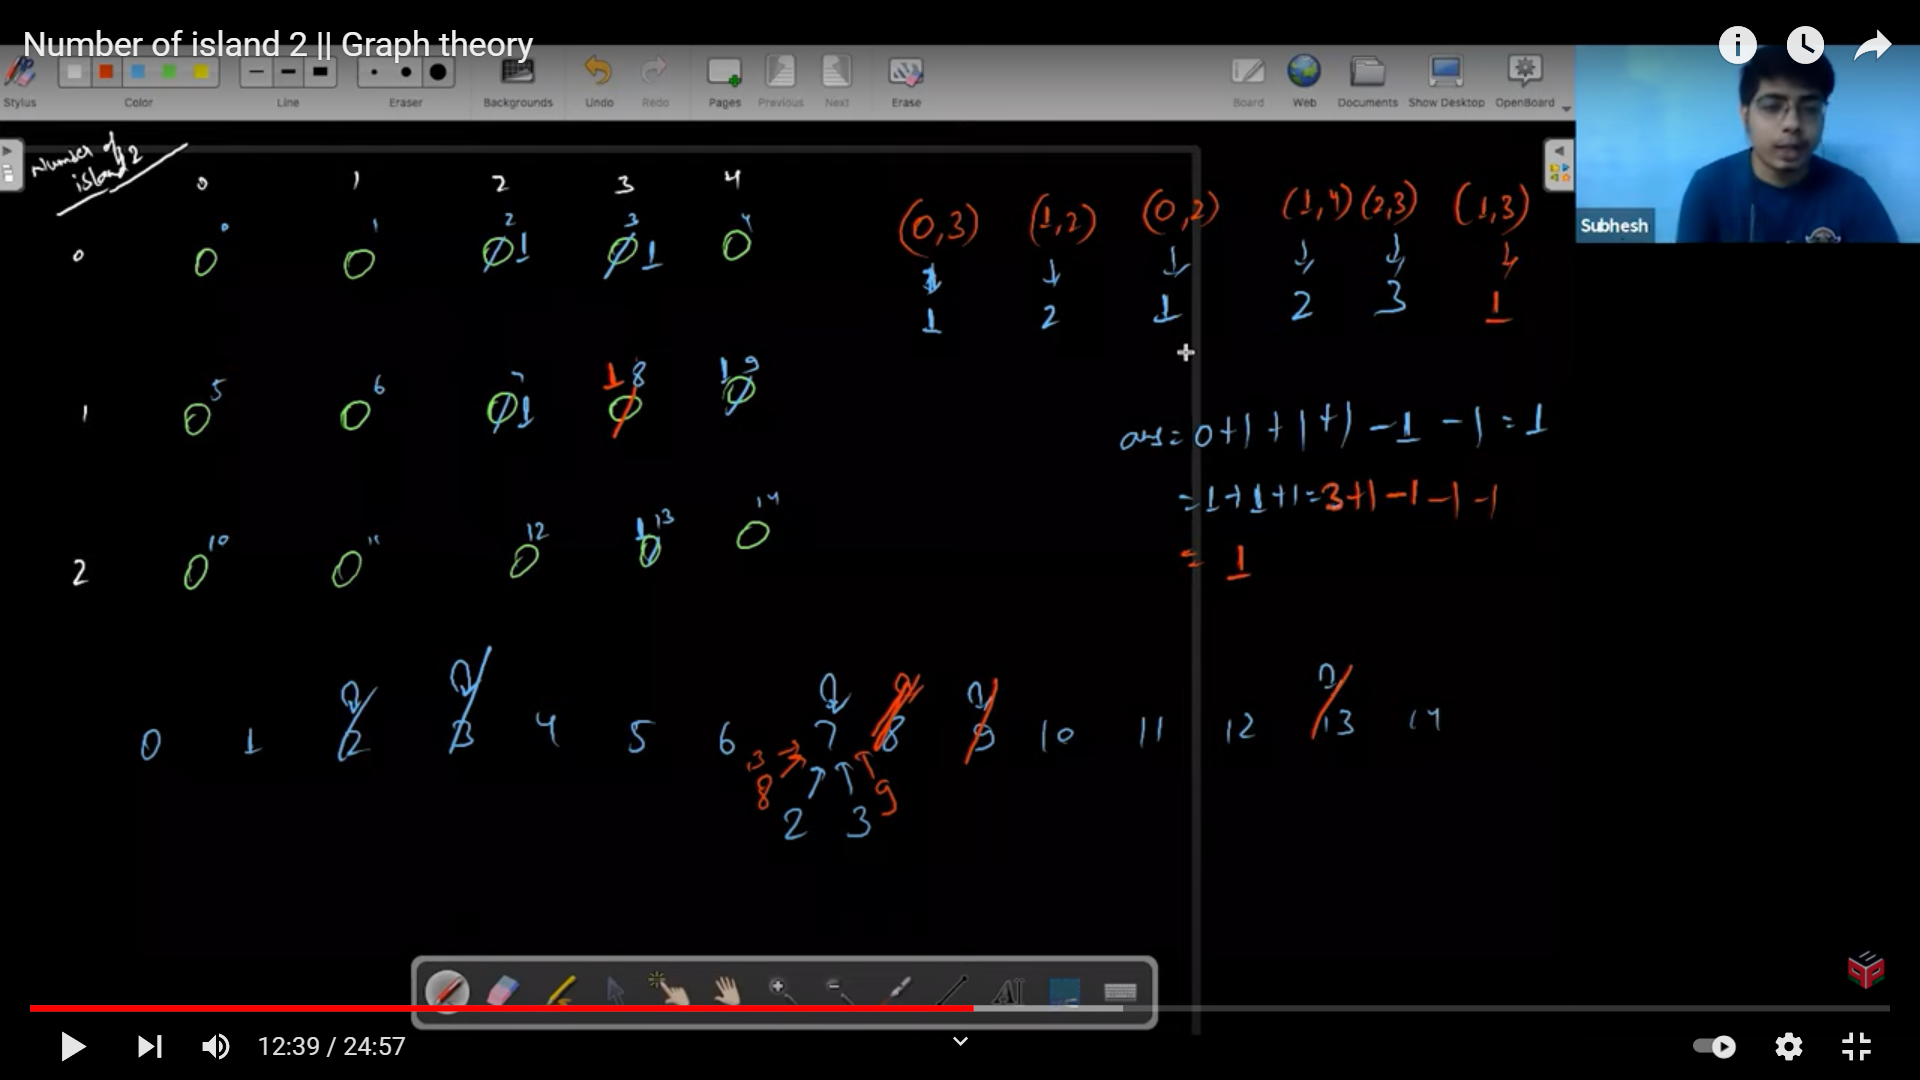 Number of island 2 || Graph theory
Stylus Color Line Eraser Backgrounds Undo Redo Pages Previous Next Erase Board Web Documents Show Desktop OpenBoard
Subhesh
Number of island 2
0 1 2 3 4
0 0 0 0 1 0 2 1 0 3 1 0 4
(0,3) (1,2) (0,2) (1,4) (2,3) (1,3)
1 2 1 2 3 1
1 0 5 0 6 0 7 1 1 0 8 1 0 9
ans = 0+1+1+1-1-1=1
=1+1+1=3+1-1-1-1
= 1
2 0 10 0 11 0 12 1 0 13 0 14
0 1 2 3 4 5 6 7 8 9 10 11 12 13 14
13
8 9
2 3
12:39 / 24:57